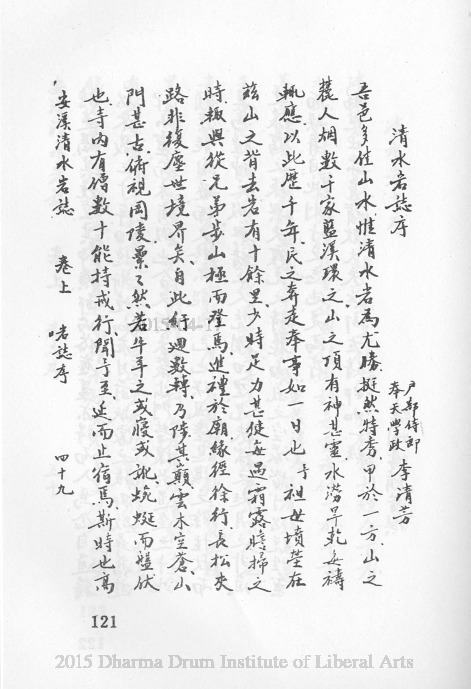 清水岩誌序
戶部侍郎
奉天學政
李清芳
吾邑多佳山水惟清水岩為尤勝挺然特秀甲於一方山之
麓人烟數千家藍溪環之山之頂有神甚靈水澇旱乾每禱
輒應以此歷千年民之奔走奉事如一日也予祖母墳塋在
茲山之背去岩有十餘里少時足力甚健每遇霜露瞻掃之
時輒與從兄弟步山極而登焉進禮於廟緣徑徐行長松夾
路非復塵世境界矣自此紆迴數轉乃陟其巔雲木空蒼山
門甚古俯視岡陵纍々然若牛羊之或寢或訛蜿蜒而盤伏
也寺內有僧數十能持戒行聞予至延而止宿焉斯時也高
安溪清水岩誌 卷上 岩誌序 四十九
121
2015-04-1
2015 Dharma Drum Institute of Liberal Arts